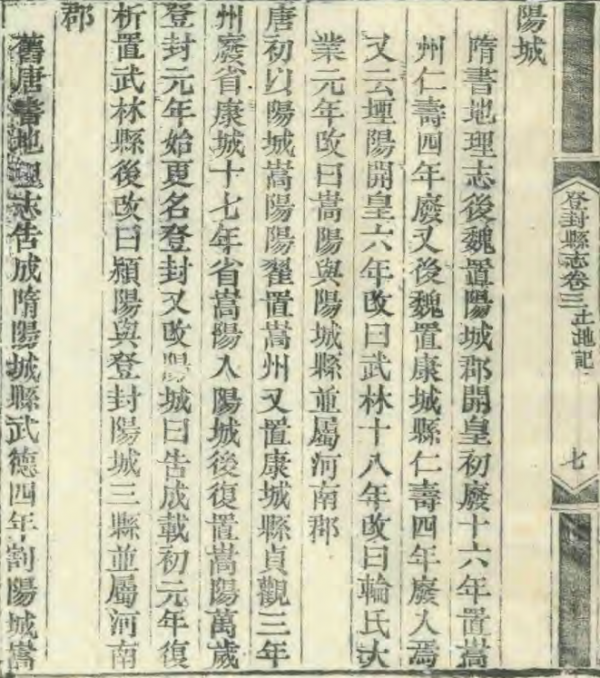 登封縣志卷三 土地記 七
陽城
隋書地理志後魏置陽城郡開皇初廢十六年置嵩
州仁壽四年廢又後魏置康城縣仁壽四年廢入焉
又云堙陽開皇六年改曰武林十八年改曰輪氏大
業元年改曰嵩陽與陽城縣並屬河南郡
唐初以陽城嵩陽陽翟置嵩州又置康城縣貞觀三年
州廢省康城十七年省嵩陽入陽城後復置嵩陽萬歲
登封元年始更名登封又改陽城曰告成載初元年復
析置武林縣後改曰潁陽與登封陽城三縣並屬河南
郡
舊唐書地理志告成隋陽城縣武德四年割陽城嵩